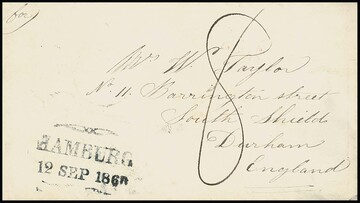 Mrs W. Taylor
No 11. Barrington street
South Shields
Durham
England
8
HAMBURG
12 SEP 1860